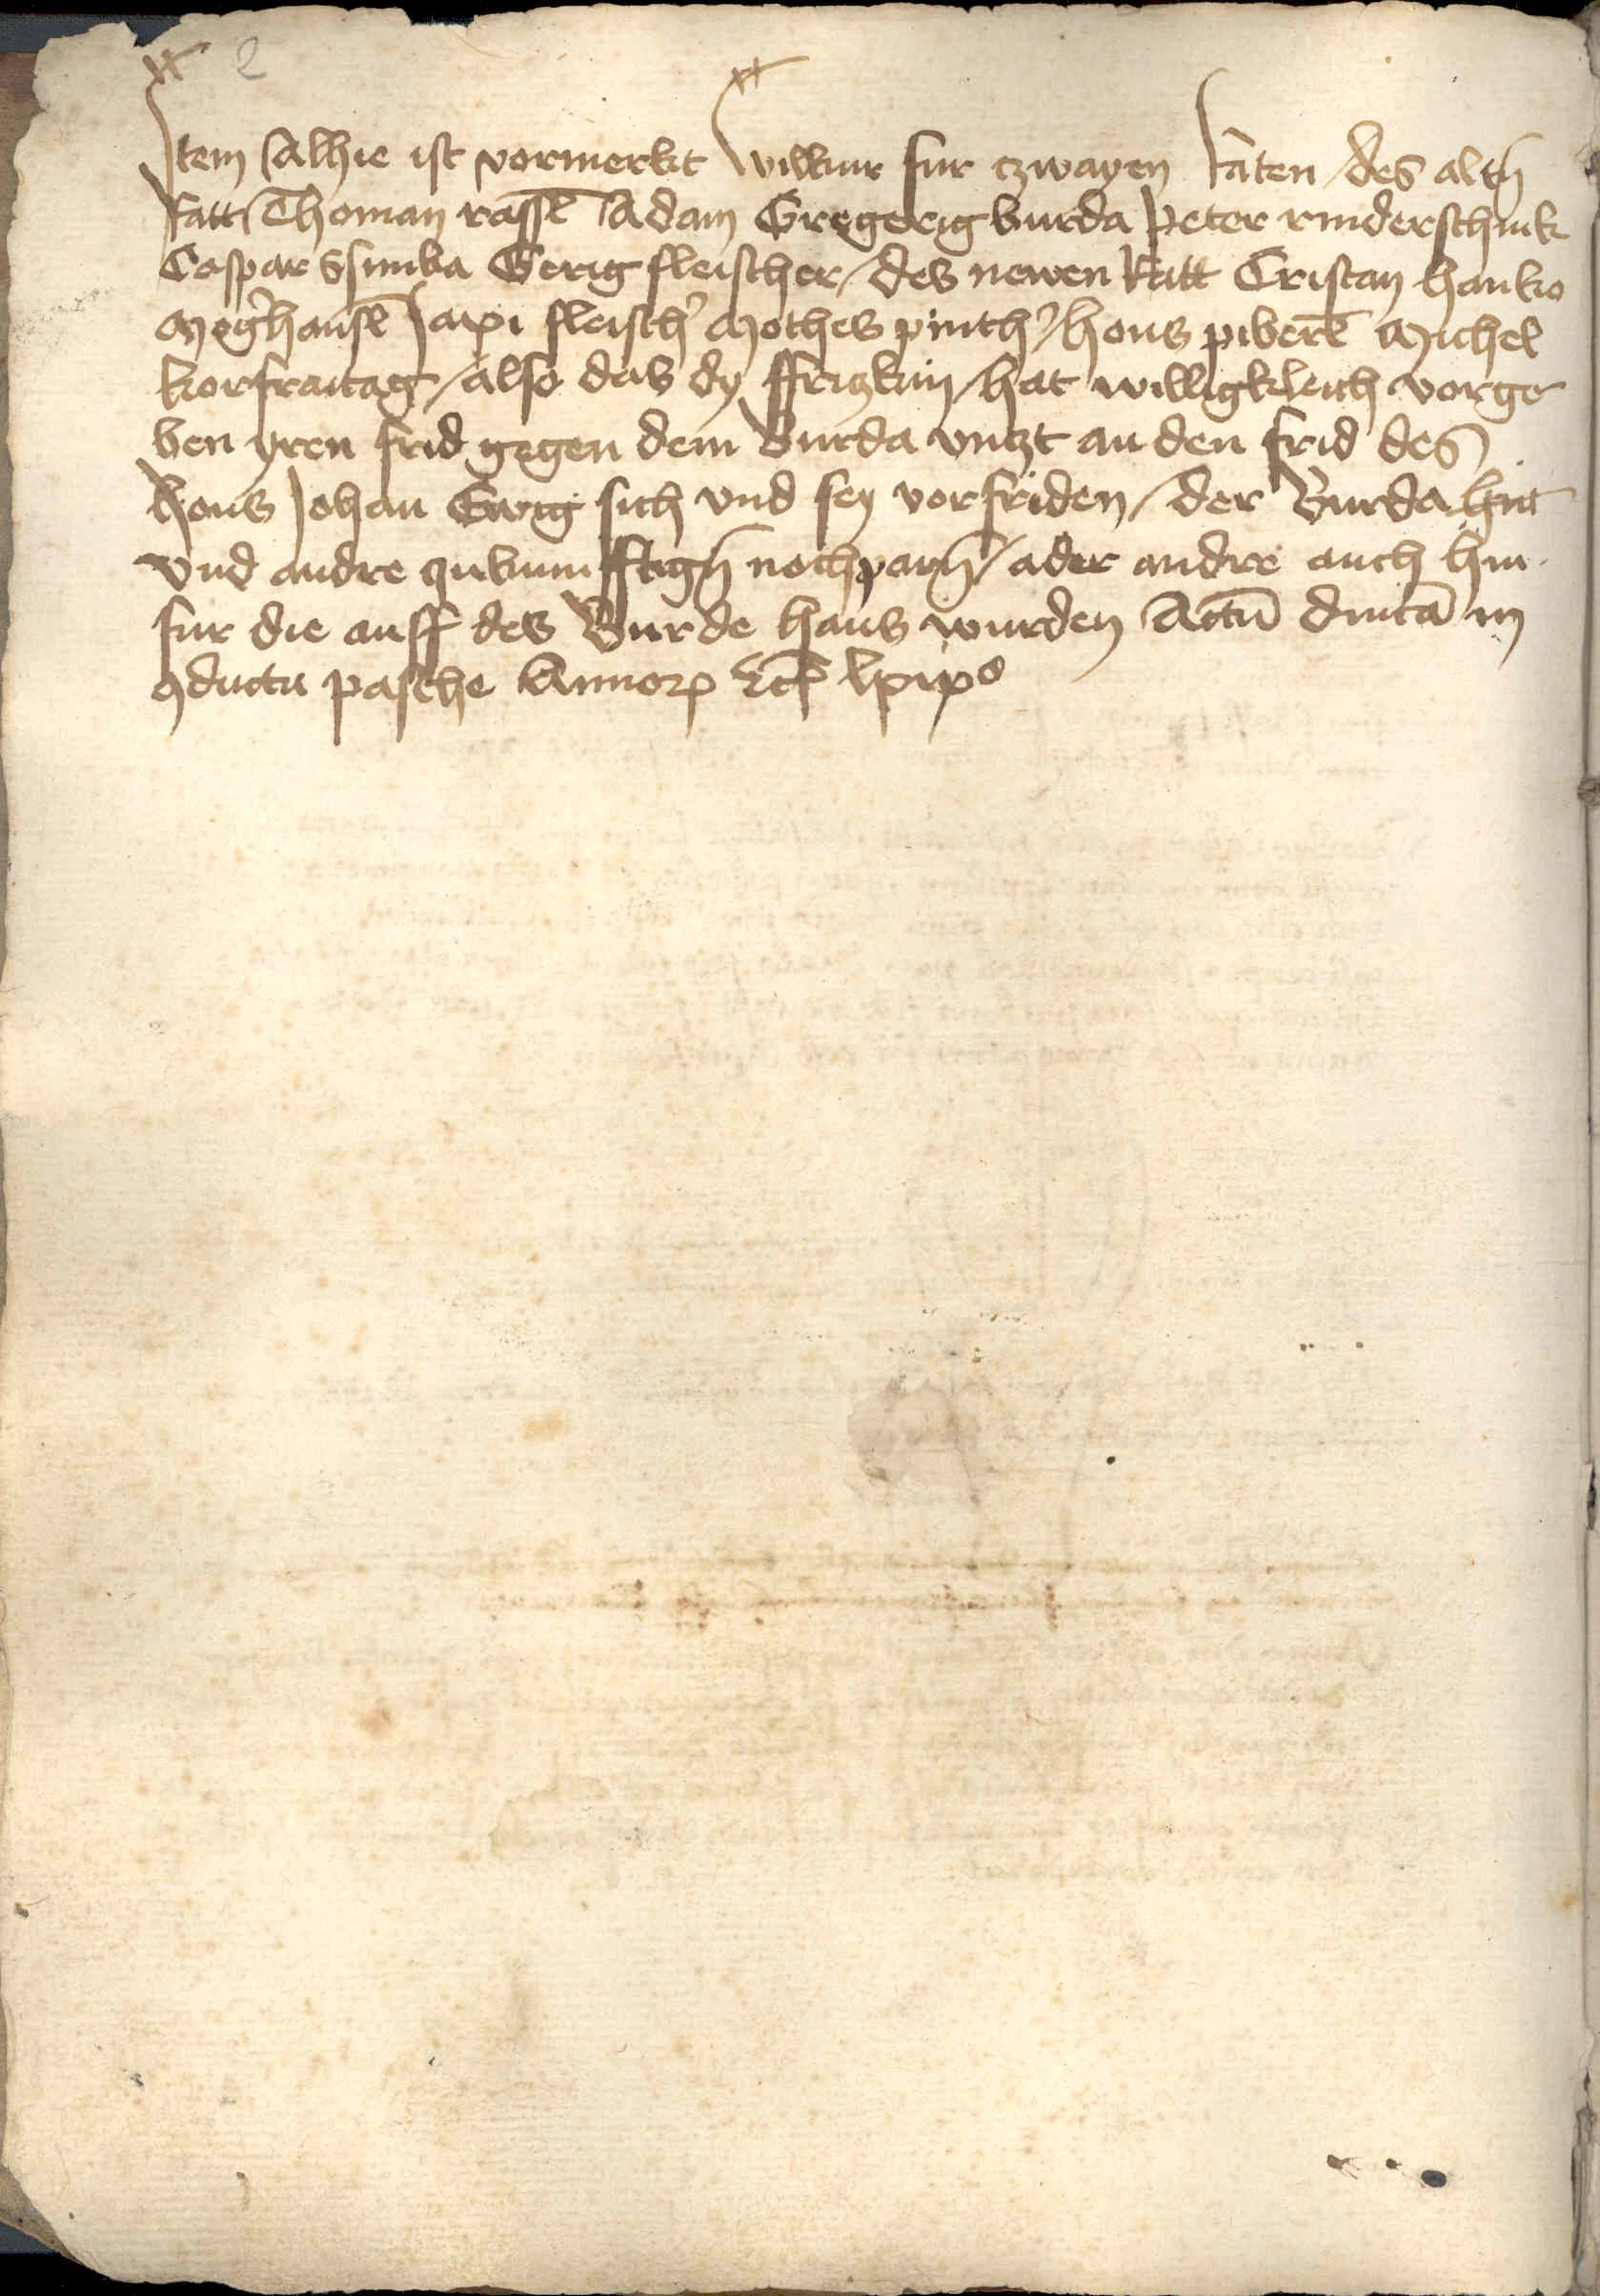 2
Item Alhie ist vormerkt willkur fur czwayen Räten / des altñ
Ratt / Thoman rassl Adam Gregerig burda Peter rinderschink
Caspar Ssimba Gerig fleischer / des newen Ratt Cristan hanko
Meg'hansl Jaxi fleisch' Mothes pinth' / hons piberl Michel
korfraitag / also das dy ffriczkin / hat williglkleich vorge
ben yren frid gegen dem Burda vntzt an den frid des
hons Johan Ewig sich vnd sey vorfriden / der Burda hut
vnd andre zukumfftign̄ nochparn̄ / ader andre auch hin
fur die auff des Burde haus wurden Actū
9ductu pasche Annor(um) etc̄ lxixo